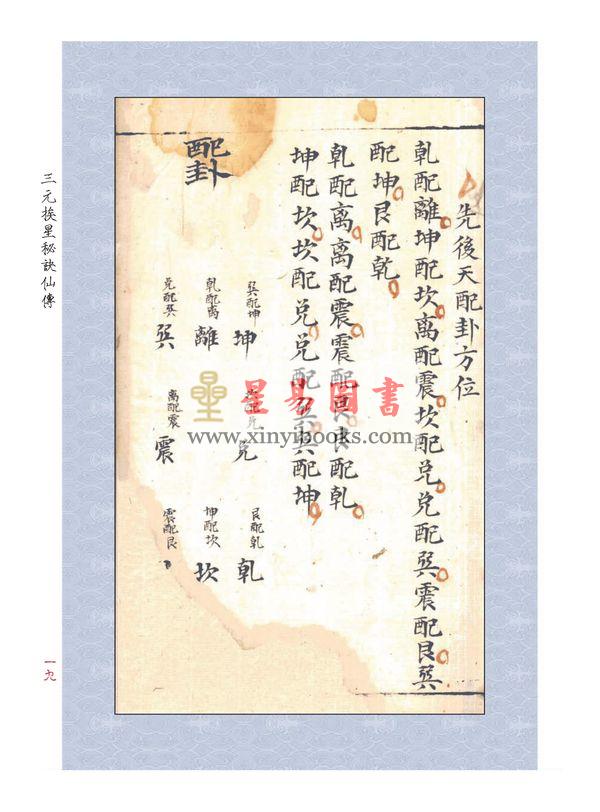 先後天配卦方位
乹配離坤配坎离配震坎配兑兑配巽震配艮巽
配坤艮配乹
乹配离离配震震配艮艮配乹
坤配坎坎配兑兑配巽巽配坤
配卦
巽配坤
坤
乹配离
離
兑配巽
巽
坎配兑
兑
离配震
震
艮配乹
乹
坤配坎
坎
震配艮
星易圖書
www.xinyibooks.com
三元挨星秘訣仙傳
一九